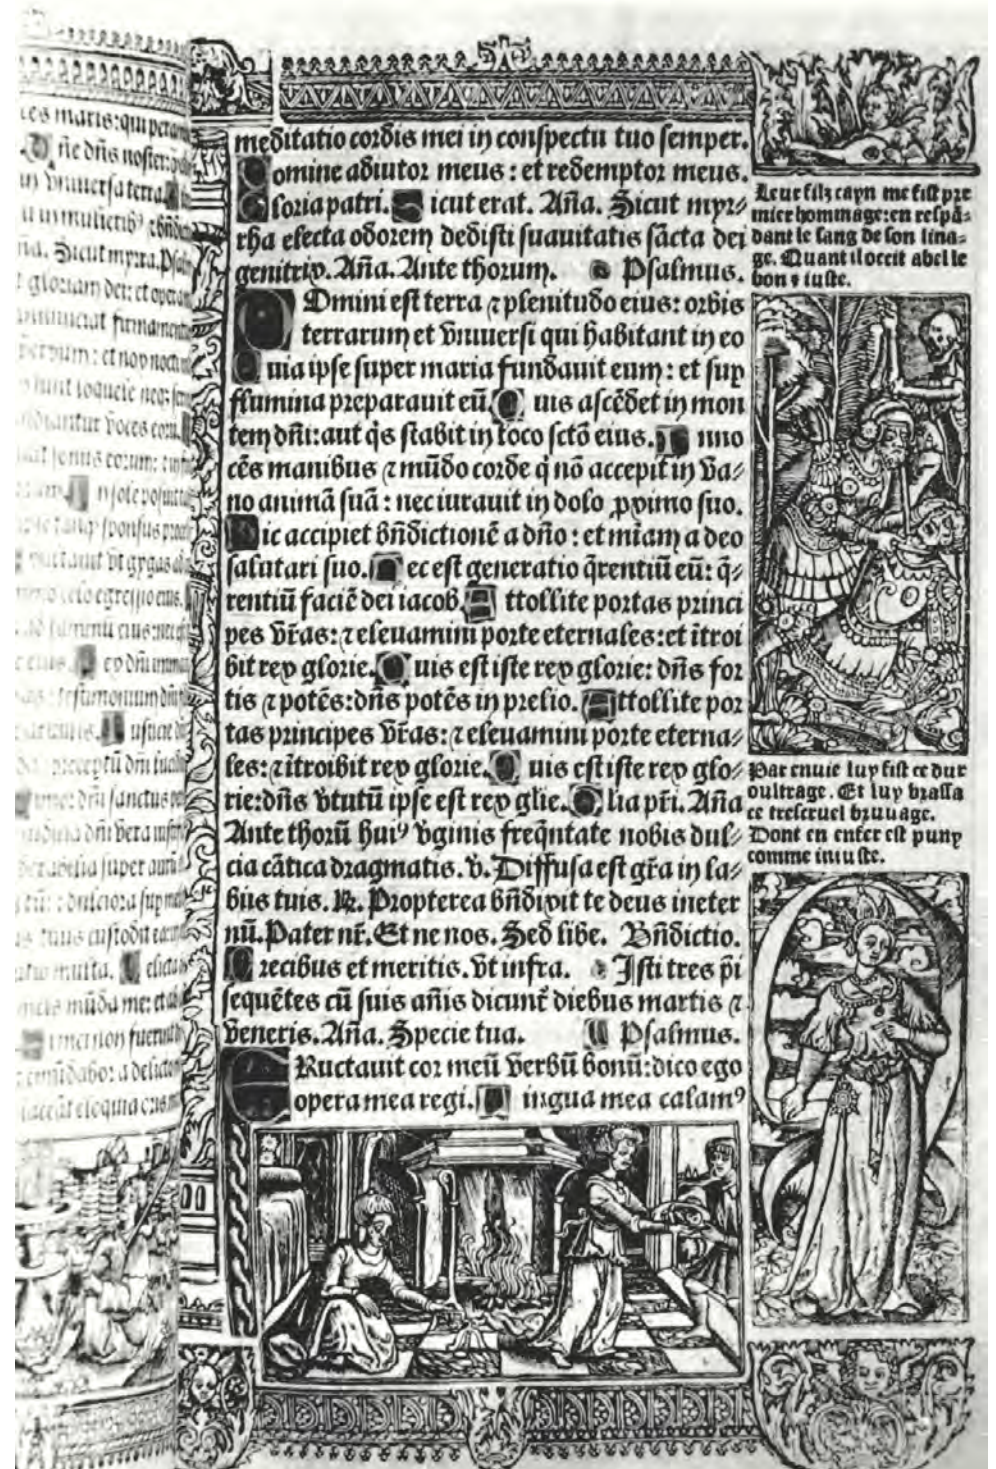 ces maris: qui
ñe dñs noster:
in vniuersa terra.
in mulieribꝰ
ña. Sicut myrra.
gloriam dei: et
firmamentū
verbum: et nox nocti
sunt loquele neqꝫ
voces eorū.
sonus eorum:
n sole posuit
sponsus
vt gygas
celo egressio eius.
ad summū eius: nec
eius. ex dñi
testimonium dñi
usticie
preceptū dñi
dñi sanctus
dñi vera
super aurū
dulciora super
tuus custodit
multa. elicta
meis mūda me: et ab
mei non fuerint
emūdabor a delicto
eloquia
meditatio cordis mei in conspectu tuo semper.
Domine adiutor meus: et redemptor meus.
Gloria patri. Sicut erat. Aña. Sicut myr⸗
rha electa odorem dedisti suauitatis sācta dei
genitrix. Aña. Ante thorum. Psalmus.
DOmini est terra ⁊ plenitudo eius: orbis
terrarum et vniuersi qui habitant in eo
Quia ipse super maria fundauit eum: et sup
flumina preparauit eū. Quis ascēdet in mon
tem dñi: aut q̄s stabit in loco sctō eius. Inno
cēs manibus ⁊ mūdo corde q̄ nō accepit in va⸗
no animā suā: nec iurauit in dolo ꝓximo suo.
Hic accipiet bñdictionē a dño: et miam̄ a deo
salutari suo. Hec est generatio q̄rentiū eū: q̄⸗
rentiū faciē dei iacob. Attollite portas princi
pes vr̄as: ⁊ eleuamini porte eternales: et ītroi
bit rex glorie. Quis est iste rex glorie: dñs for
tis ⁊ potēs: dñs potēs in prelio. Attollite por
tas principes vr̄as: ⁊ eleuamini porte eterna⸗
les: ⁊ ītroibit rex glorie. Quis est iste rex glo⸗
rie: dñs vtutū ipse est rex glie. Glia pr̄i. Aña
Ante thorū huiꝰ vginis freq̄ntate nobis dul⸗
cia cātica dragmatis. v̄. Diffusa est gr̄a in la⸗
biis tuis. R̄. Propterea bñdixit te deus in eter
nū. Pater nr̄. Et ne nos. Sed libe. Bñdictio.
Precibus et meritis. vt infra. Isti tres p̄i
sequētes cū suis añis dicunt᷑ diebus martis ⁊
veneris. Aña. Specie tua. Psalmus.
ERuctauit cor meū verbū bonū: dico ego
opera mea regi. Lingua mea calamꝰ
Leur filz cayn me fist pre
mier hommage: en respā⸗
dant le sang de son lina⸗
ge. Quant il occit abel le
bon ⁊ iuste.
Par enuie luy fist ce dur
oultrage. Et luy brassa
ce trescruel bruuage.
Dont en enfer est puny
comme iniuste.